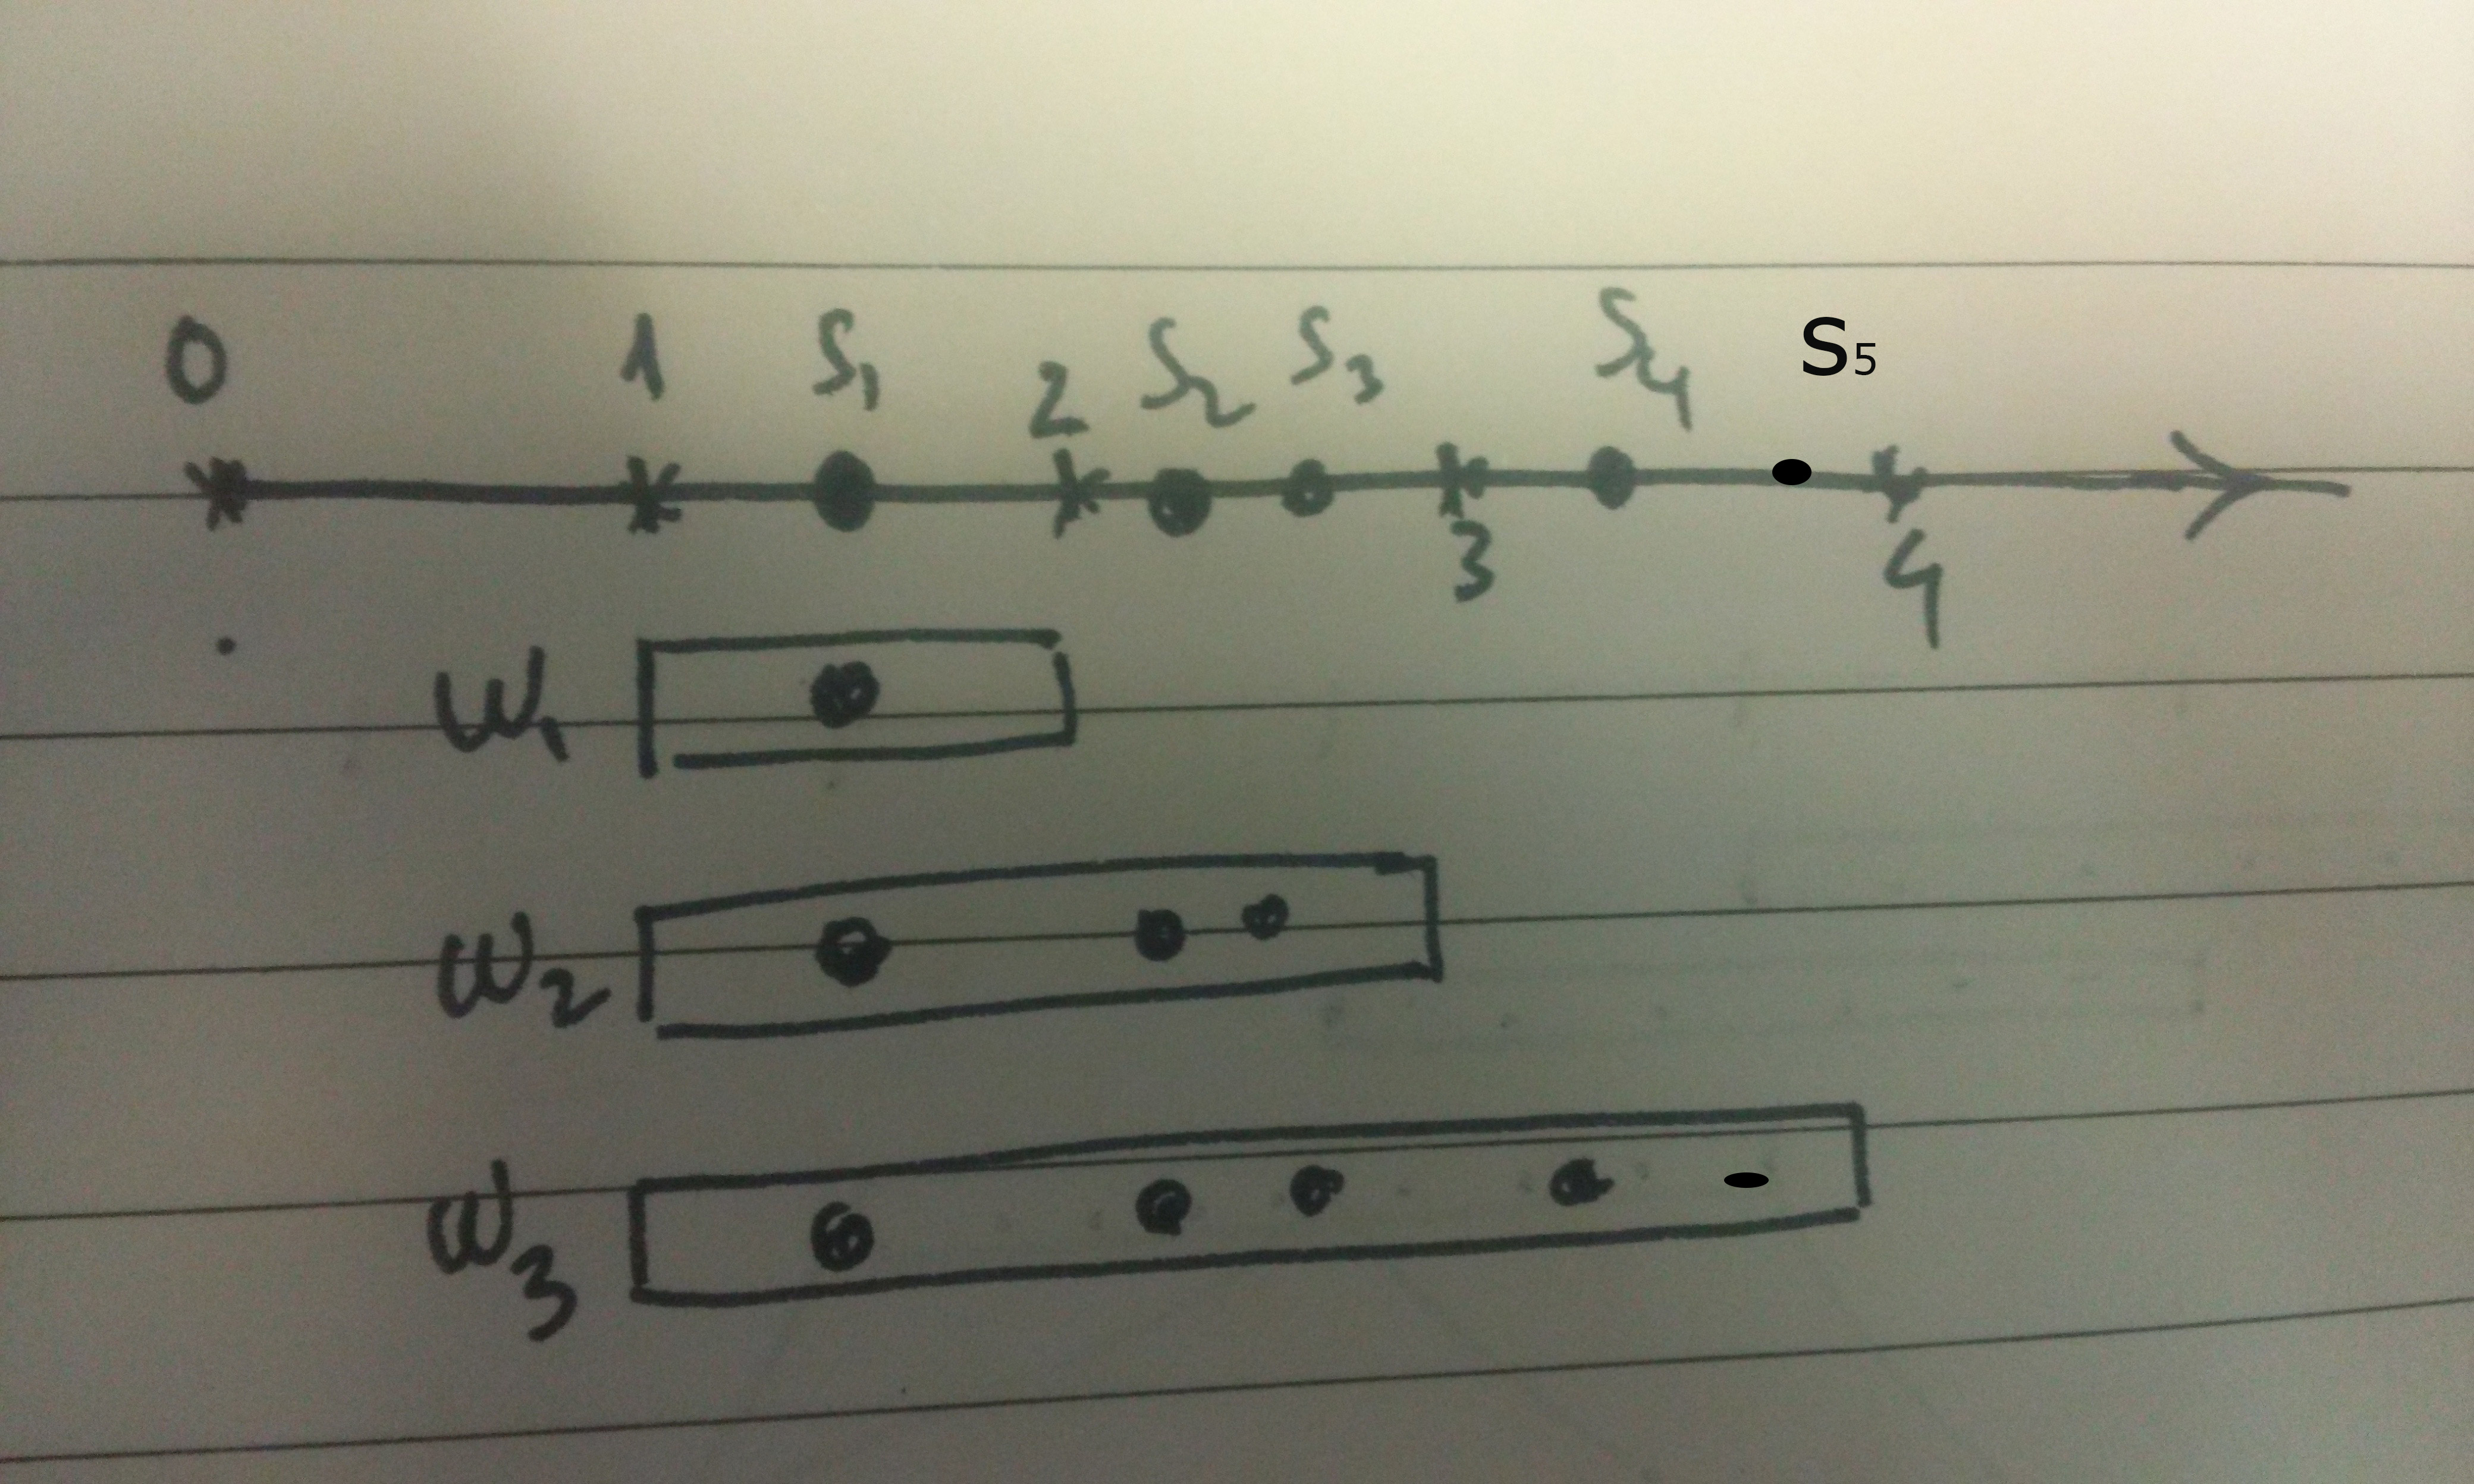 0 1 S₁ 2 S₂ S₃ S₄ S₅
3 4
W₁
W₂
W₃